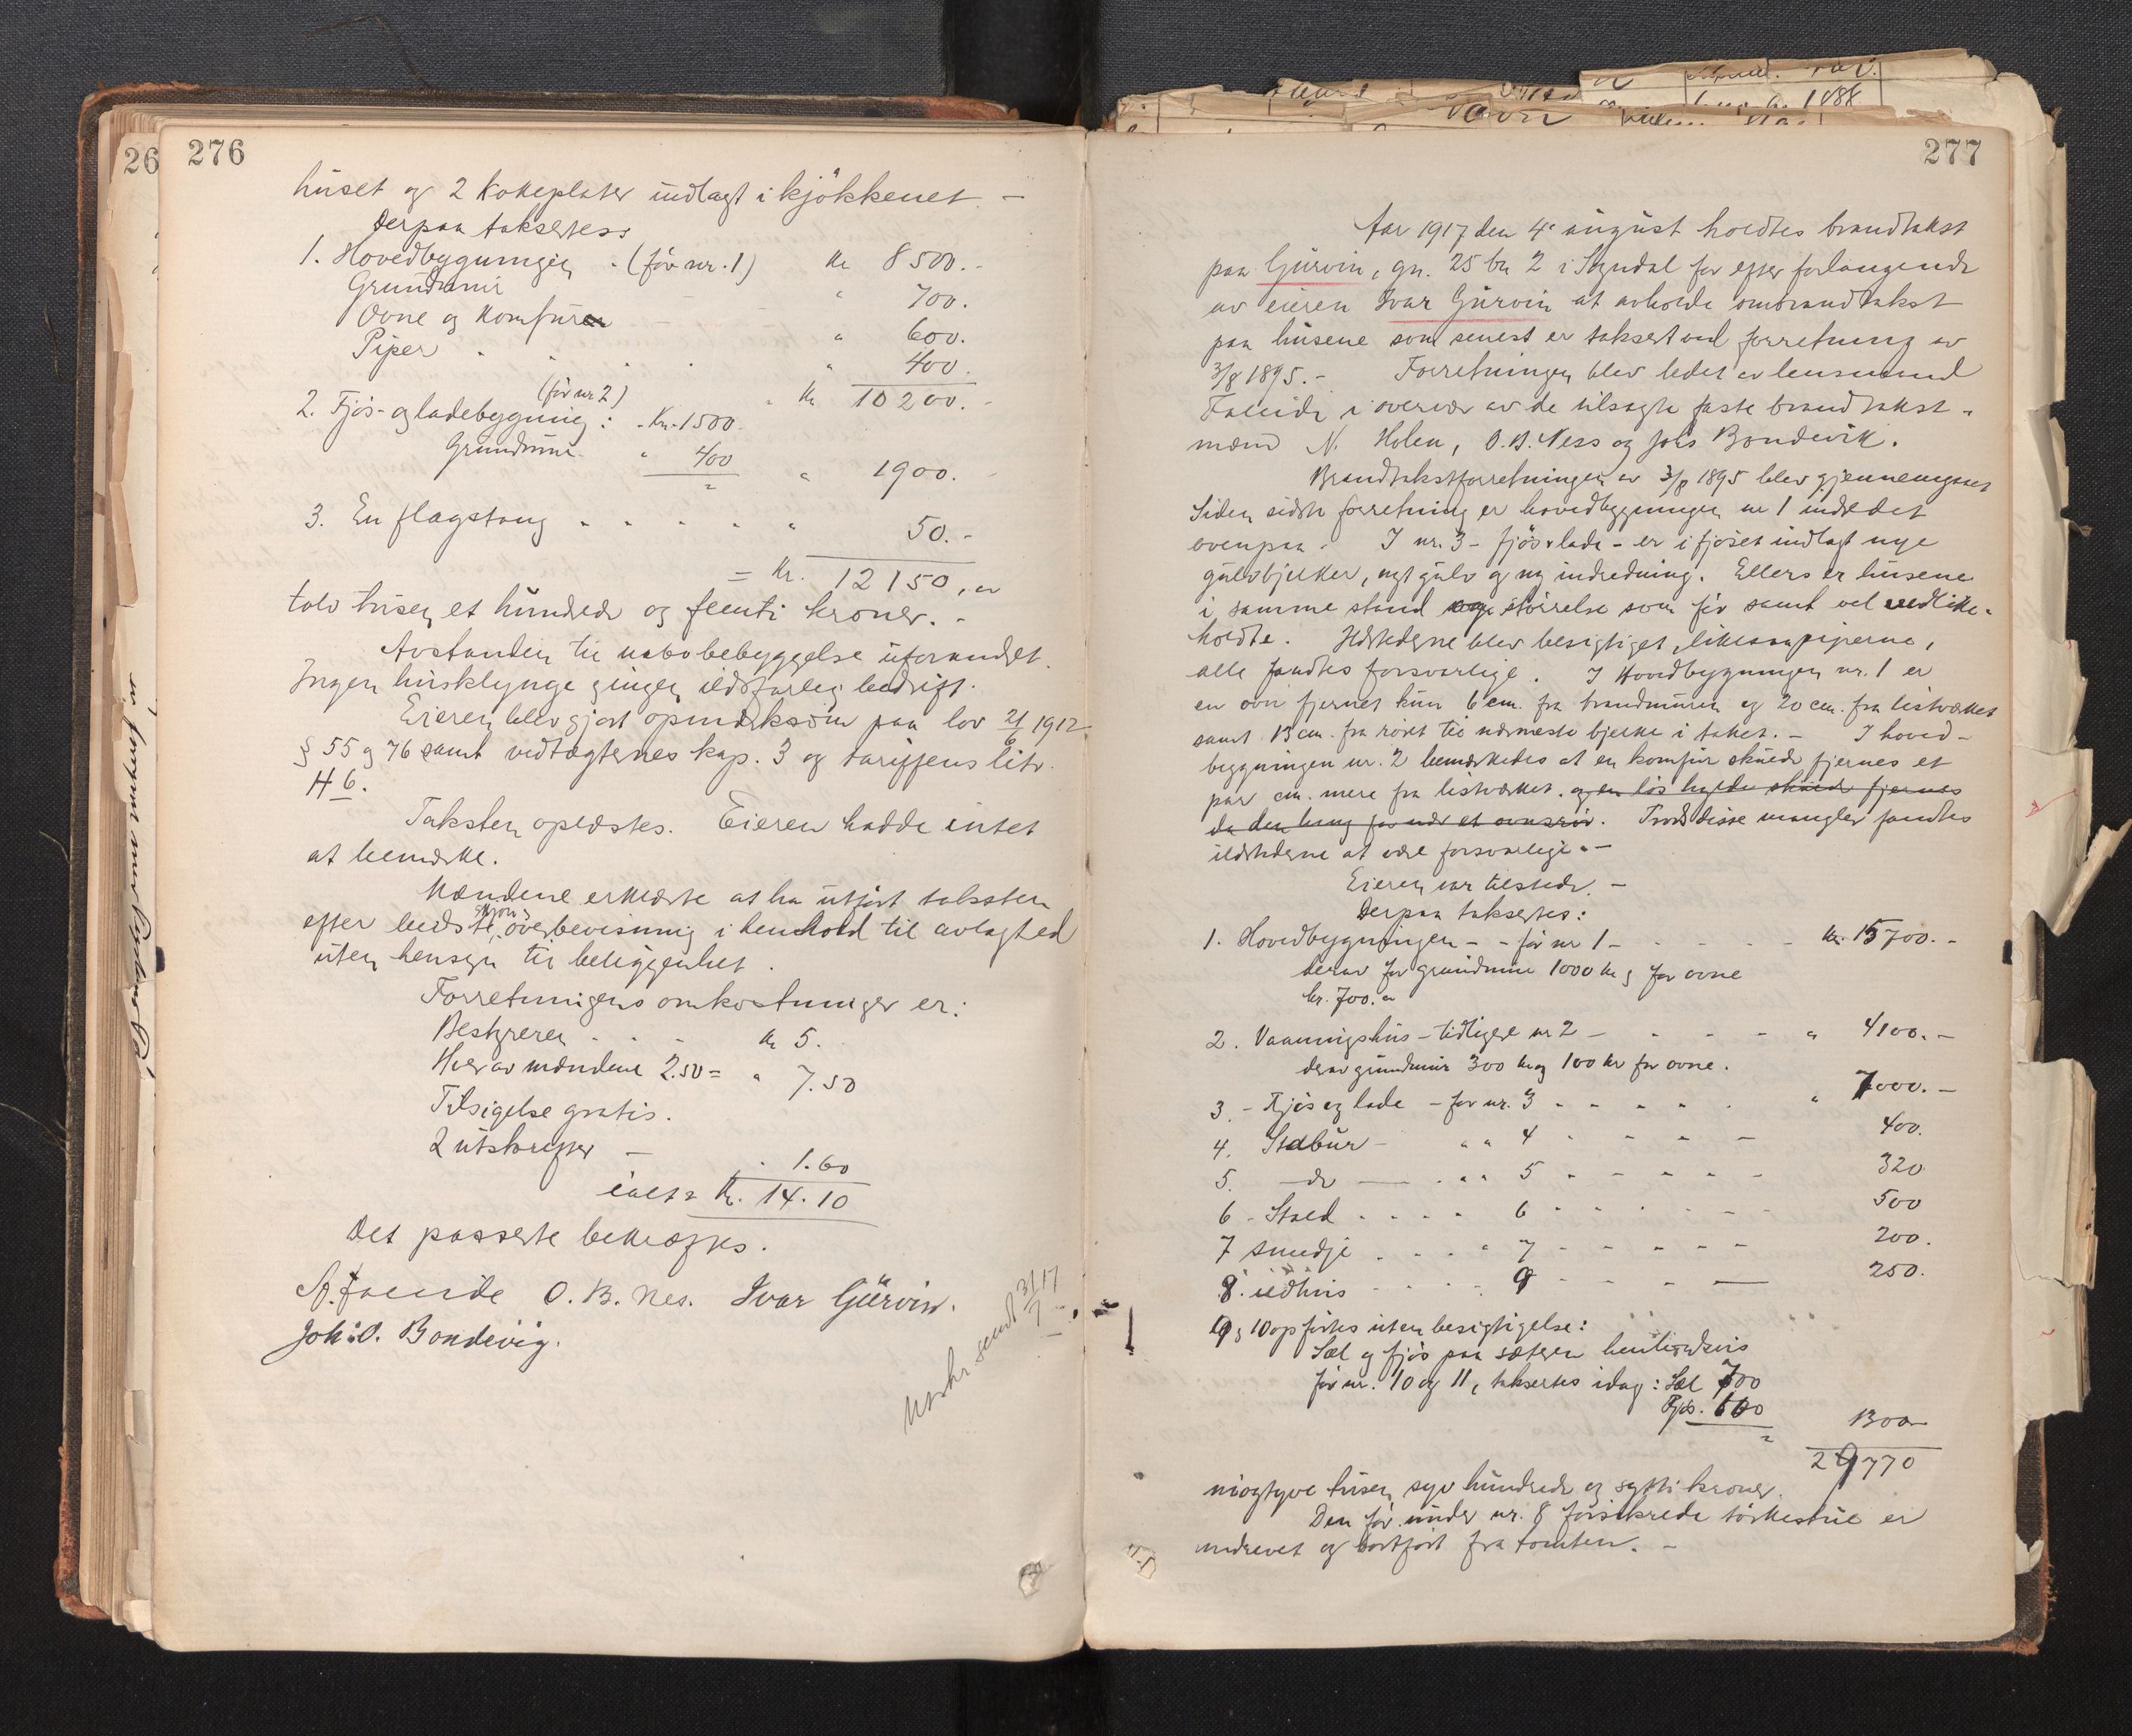 276
huset og 2 kokeplater indlagt i kjökkenet. –
Derpaa taksertes:
1. Hovedbygningen - (för nr. 1) Kr 8500. -
Grundmur " 700.
Ovne og Komfur " 600.
Piper " 400.
Kr 10200. -
(för nr 2)
2. Fjös- og ladebygning: - Kr. 1500
Grundmur " 400 " 1900. -
3. En flagstang " 50. -
= Kr. 12150,
tolv tusen et hundrede og femti kroner. -
Avstanden til nabobebyggelse uforandret.
Ingen husklynge ingen ildsfarlig bedrift.
Eieren blev gjort opmerksom paa lov 21/6 1912
§ 55 og 76 samt vedtægternes kap. 3 og tariffens litr.
H 6.
Taksten oplæstes. Eieren hadde intet
at bemerke.
Mændene erklærte at ha utfört taksten
efter bedste skjön, overbevisning i henhold til avlagt ed
uten hensyn til beliggenhet.
Forretningens omkostninger er:
Bestyreren Kr 5.
Hver av mændene 2.50 = " 7.50
Tilsigelse gratis.
2 utskrifter – 1.60
ialt = Kr. 14.10
Det passerte bekræftes.
A. Faleide O. B. Nes. Ivar Gürvin.
Joh: O. Bondevig.
Utskr. sendt 31/7 17
277
Aar 1917 den 4de august holdtes brandtakst
paa Gürvin, gn. 25 bn 2 i Sogndal for efter forlangende
av eieren Ivar Gürvin at avholde ombrandtakst
paa husene som senest er taksert ved forretning av
3/8 1895. - Forretningen blev ledet av lensmand
Faleide i overvær av de tilsagte faste brandtakst-
mænd N. Holen, O. B. Ness og Johs Bondevik.
Brandtakstforretningen av 3/8 1895 blev gjennemgaaet
Siden sidste forretning er hovedbygningen nr 1 indredet
ovenpaa. I nr. 3 - fjös & lade - er i fjöset indlagt nye
gulvbjelker, nyt gulv og ny indredning. Ellers er husene
i samme stand og störrelse som för samt vel vedlike-
holdte. Ildstederne blev besigtiget, likesaa piperne,
alle fandtes forsvarlige. I Hovedbygningen nr. 1 er
en ovn fjernet kun 6 cm. fra brandmuren og 20 cm. fra listverket
samt 13 cm. fra röret til nærmeste bjelke i taket. - I hoved-
bygningen nr. 2 bemerkedes at en komfur skulde fjernes et
par cm. mere fra listverket. og en lös hylde skulde fjernes
da den hang for nær et ovnsrör. Trods disse mangler fandtes
ildstederne at være forsvarlige. -
Eieren var tilstede. -
Derpaa taksertes:
1. Hovedbygningen - - för nr 1 - Kr. 15700. -
derav for grundmur 1000 kr og for ovne
kr. 700.
2. Vaaningshus - tidligere nr 2 - " 4100. -
derav grundmur 300 kr og 100 kr for ovne.
3. - Fjös og lade - för nr. 3 " 7000. -
4. Stabur - " " 4 400.
5. - do - " " 5 320
6 - Stald 6 500
7 Smedje " 7 200.
8. ildhus 9 250.
9 og 10 opförtes uten besigtigelse:
Sæl og fjös paa sæteren henholdsvis
för nr. 10 og 11, taksertes idag: Sæl 700
Fjös. 600
1300
29770
niogtyve tusen syv hundrede og sytti kroner.
Den för under nr. 8 forsikrede törkestue er
nedrevet og bortfört fra tomten. -